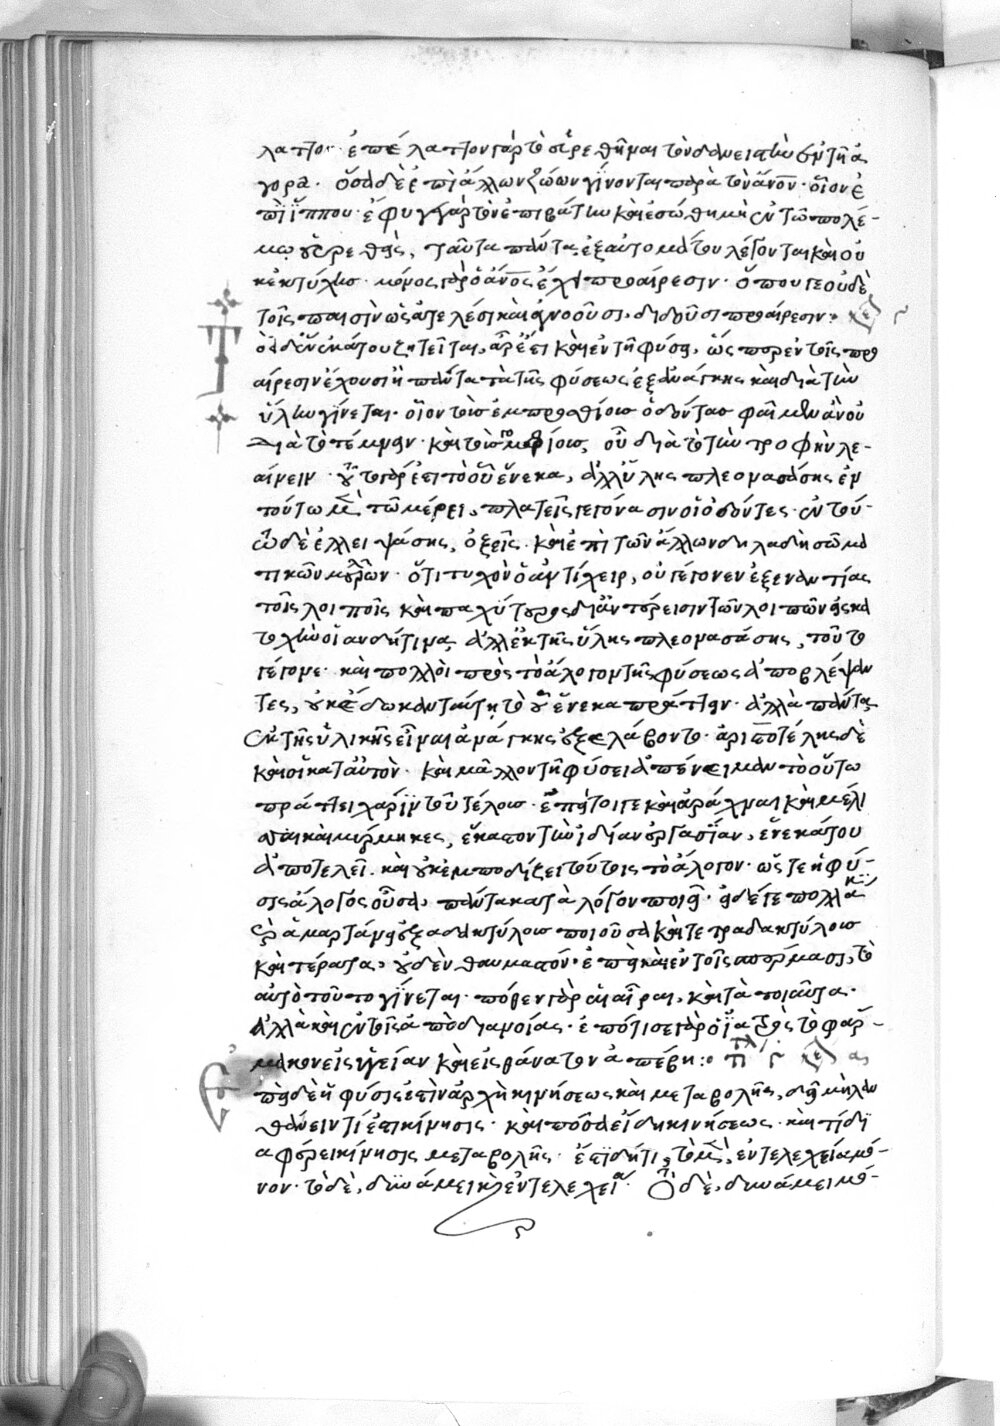 λαττον· ἐπ' ἔλαττον γὰρ τὸ εὑρεθῆναι τὸν δανειστὴν ἐν τῆ ἀ
γορᾶ. ὅσα δὲ ἐπὶ ἄλλων ζώων γίνονται παρὰ τὸν ἄνον· οἷον ἐ
πὶ ἵππου· ἔφυγε γὰρ τὸν ἐπιβάτην καὶ ἐσώθη μὴ ἐν τῶ πολέ-
μω εὑρεθεὶς, ταῦτα πάντα ἐξ αὐτομάτου λέγονται καὶ οὐ
κ ἐκ τύχης· μόνος γὰρ ὁ ἄνος ἔχει προαίρεσιν· ὅπου γε οὐδὲ
τοῖς παισὶν ὡς ἀτελέσι καὶ ἀγνοοῦσι, διδοῦσι προαίρεσιν:
Τὸ δ' ἕνεκά του ζητεῖται, ἆρ' ἔστι καὶ ἐν τῆ φύσει, ὥσπερ ἐν τοῖς προ
αίρεσιν ἔχουσι ἢ πάντα τὰ τῆς φύσεως ἐξ ἀνάγκης καὶ διὰ τὴν
ὕλην γίνεται· οἷον τοὺς ἐμπροσθίους ὀδόντας φαμὲν ἀνου
διὰ τὸ τέμνειν· καὶ τοὺς γομφίους, οὐ διὰ τὸ τὴν τροφὴν λε-
αίνειν· τοῦτο γάρ ἐστι τὸ οὗ ἕνεκα, ἀλλ' ὕλης πλεονασάσης ἐν
τούτω μὲν τῶ μέρει, πλατεῖς γεγόνασιν οἱ ὀδόντες· ἐν τού-
τω δὲ ἐλλειψάσης, ὀξεῖς· καὶ ἐπὶ τῶν ἄλλων δηλαδὴ σωμα
τικῶν μορίων· ὅτι τυχὸν ὁ ἀντίχειρ, οὐ γέγονεν ἐξ ἐναντίας
τοῖς λοιποῖς καὶ παχύτερος
γέγονε· καὶ πολλοὶ πρὸς τὸ ἄλογον τῆς φύσεως ἀποβλέψαν
τες, οὐκ ἔδωκαν ταύτη τὸ οὗ ἕνεκα πράττειν· ἀλλὰ πάντα
ἐκ τῆς ὑλικῆς εἶναι ἀνάγκης ἐξελάβοντο· ἀριστοτέλης δὲ
καὶ οἱ κατ' αὐτὸν· καὶ μᾶλλον τῆ φύσει ἀπένειμαν τὸ οὕτω
πράττει χάριν τοῦ τέλους· ἐπεί τοι γε καὶ ἀράχναι καὶ μέλι
σσαι καὶ μύρμηκες, ἕκαστον τὴν ἰδίαν ἐργασίαν, ἕνεκά του
ἀποτελεῖ. καὶ οὐκ ἐμποδίζει τούτοις τὸ ἄλογον· ὥστε ἡ φύ-
σις ἄλογος οὖσα, πάντα κατὰ λόγον ποιεῖ· εἰ δέ γε πολλάκις
ἁμαρτάνει ἑξαδακτύλους ποιοῦσα καὶ τετραδακτύλους
καὶ τέρατα, οὐδὲν θαυμαστόν· ἐπεὶ καὶ ἐν τοῖς σπέρμασι, τὸ
αὐτὸ τοῦτο γίνεται· πόθεν γὰρ αἱ στεῖραι, καὶ τὰ τοιαῦτα.
ἀλλὰ καὶ ἐν τοῖς ἀπὸ διανοίας· ἐπότισε γὰρ ὁ ἰατρὸς τὸ φάρ-
μακον εἰς ὑγείαν καὶ εἰς θάνατον ἀπέβη:
Ἐπεὶ δὲ ἡ φύσις ἐστὶν ἀρχὴ κινήσεως καὶ μεταβολῆς, δεῖ μὴ λαν
θάνειν τί ἐστι κίνησις· καὶ πόσα εἴδη κινήσεως· καὶ τί δι
αφέρει κίνησις μεταβολῆς· ἔστι δή τι, τὸ μὲν, ἐντελεχεία μό-
νον· τὸ δὲ, δυνάμει καὶ ἐντελεχεία· Ὃ δὲ, δυνάμει μό-